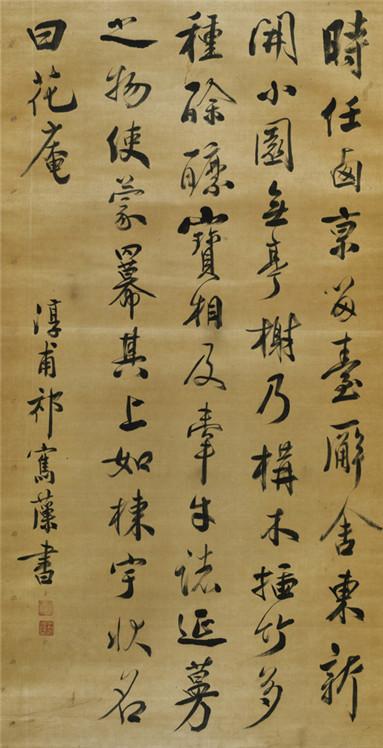 時任卥京留臺廨舍東新
開小園無亭榭乃構木插竹多
種酴醿寶相及牽牛諸延蔓
之物使蒙冪其上如棟宇狀名
曰花庵
淳甫祁寯藻書